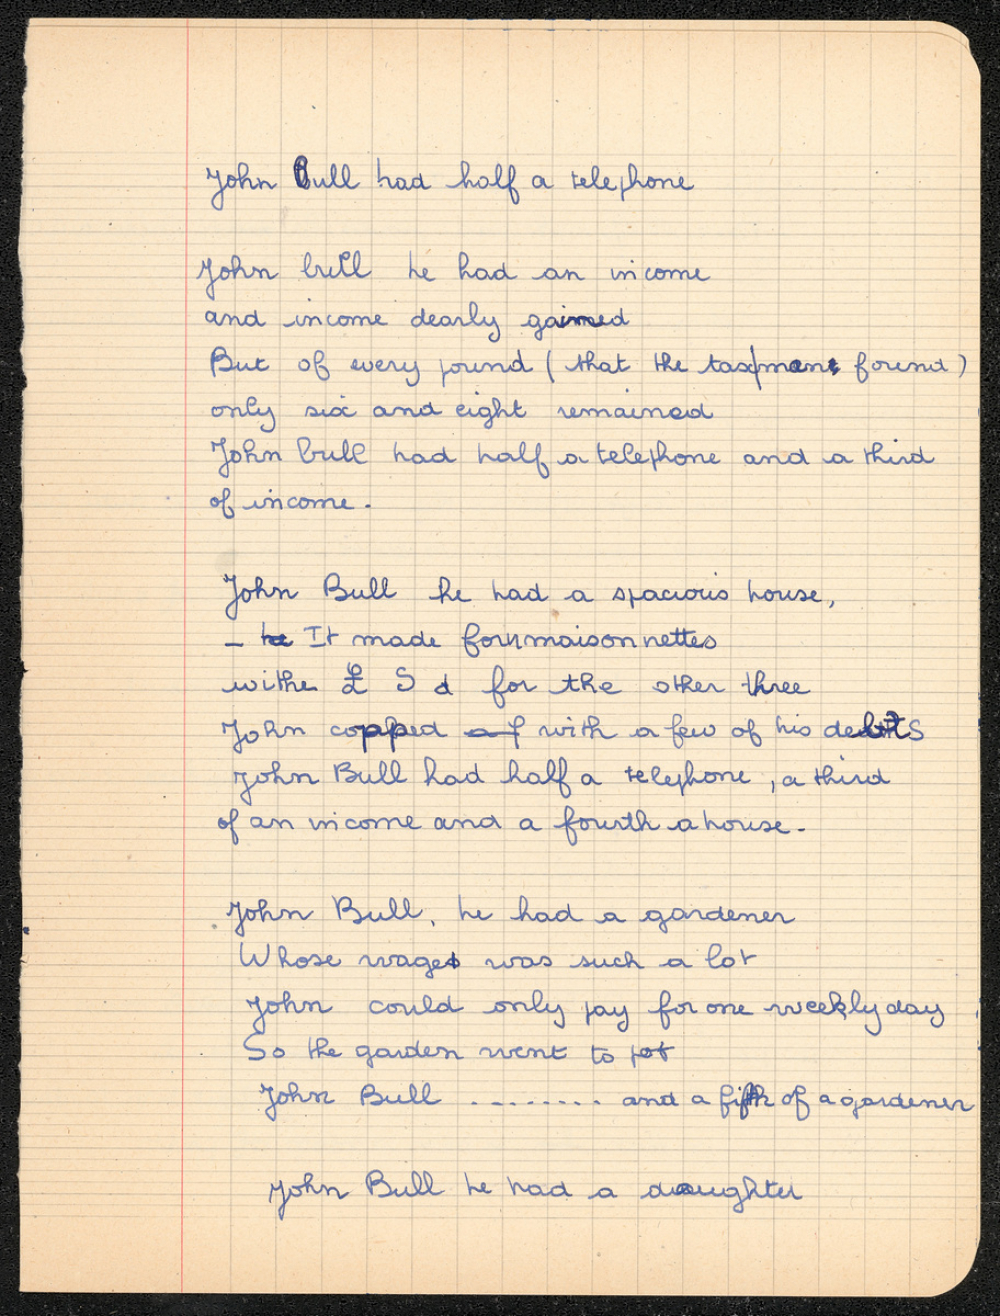 John Bull had half a telephone
John bull he had an income
and income dearly gained
But of every pound (that the taxmen found)
only six and eight remained
John bull had half a telephone and a third
of income.
John Bull he had a spacious house,
- It made four maisonnettes
withe £ S d for the other three
John copped with a few of his debts
John Bull had half a telephone, a third
of an income and a fourth a house.
John Bull, he had a gardener
Whose wages was such a lot
John could only pay for one weekly day
So the garden went to pot
John Bull ......... and a fifth of a gardener
John Bull he had a daughter